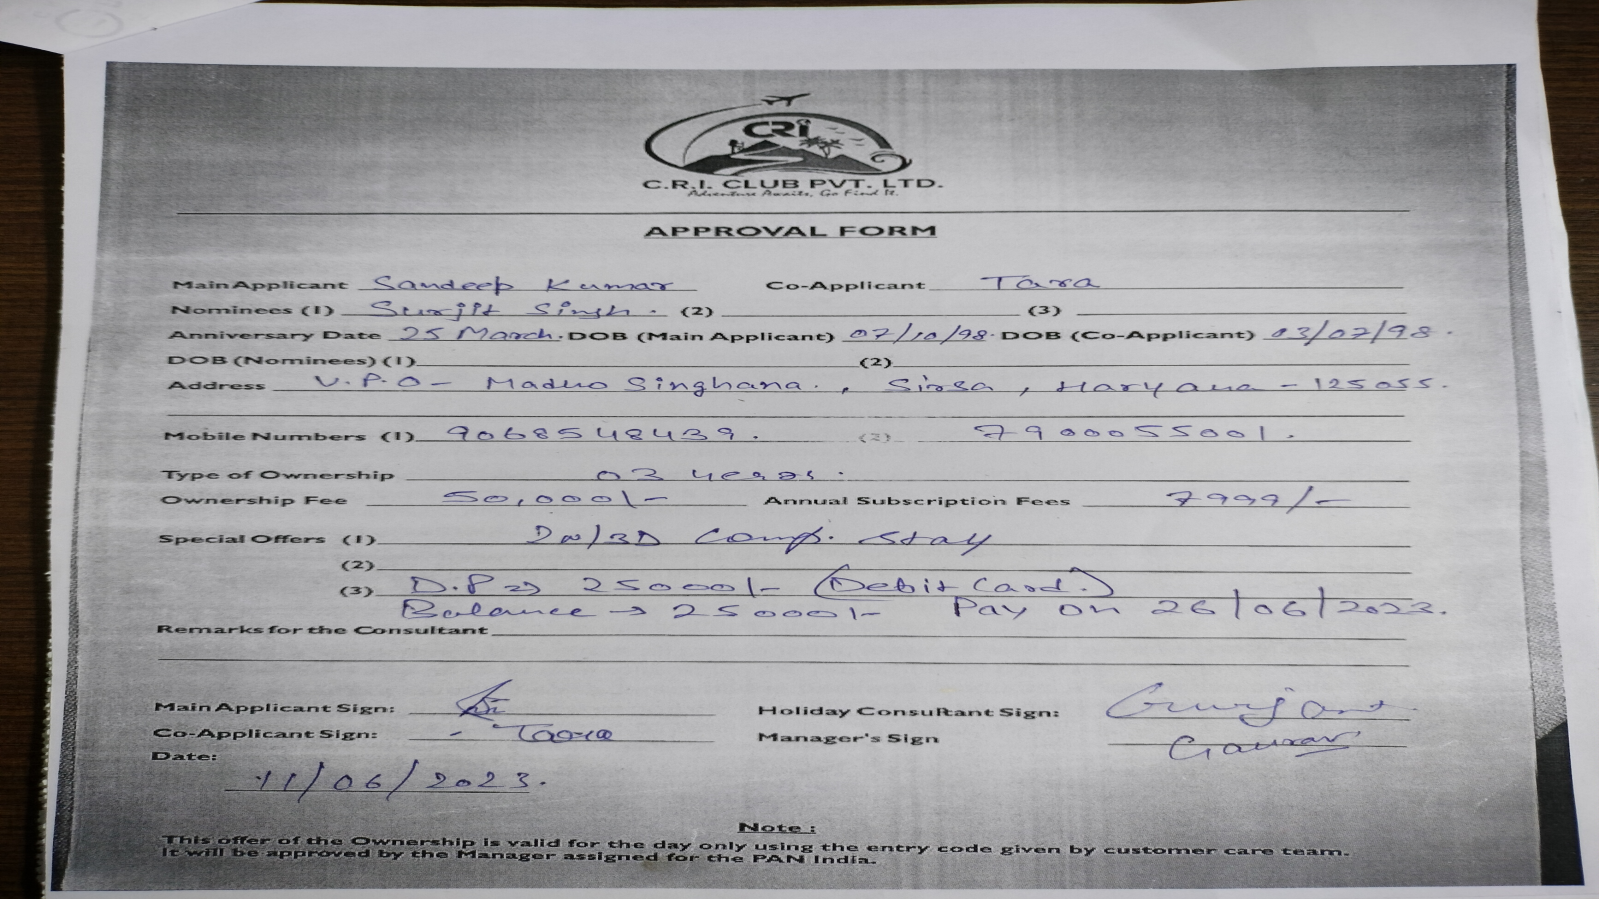 CRi
C.R.I. CLUB PVT. LTD.
Adventure Awaits, Go Find It.
APPROVAL FORM
Main Applicant Sandeep Kumar Co-Applicant Tara
Nominees (1) Surjit Singh. (2) (3)
Anniversary Date 25 March. DOB (Main Applicant) 07/10/98. DOB (Co-Applicant) 03/07/98.
DOB (Nominees) (1) (2)
Address V.P.O - Madho Singhana., Sirsa, Haryana - 125055.
Mobile Numbers (1) 9068548439. (2) 7900055001.
Type of Ownership 03 years.
Ownership Fee 50,000/- Annual Subscription Fees 7999/-
Special Offers (1) 2N/3D Comp. Stay
(2)
(3) D.P => 25000/- (Debit Card.)
Balance → 25000/- Pay on 26/06/2023.
Remarks for the Consultant
Main Applicant Sign: Holiday Consultant Sign: Gurjant
Co-Applicant Sign: - Taara Manager's Sign Gaurav
Date:
11/06/2023.
Note :
This offer of the Ownership is valid for the day only using the entry code given by customer care team.
It will be approved by the Manager assigned for the PAN India.